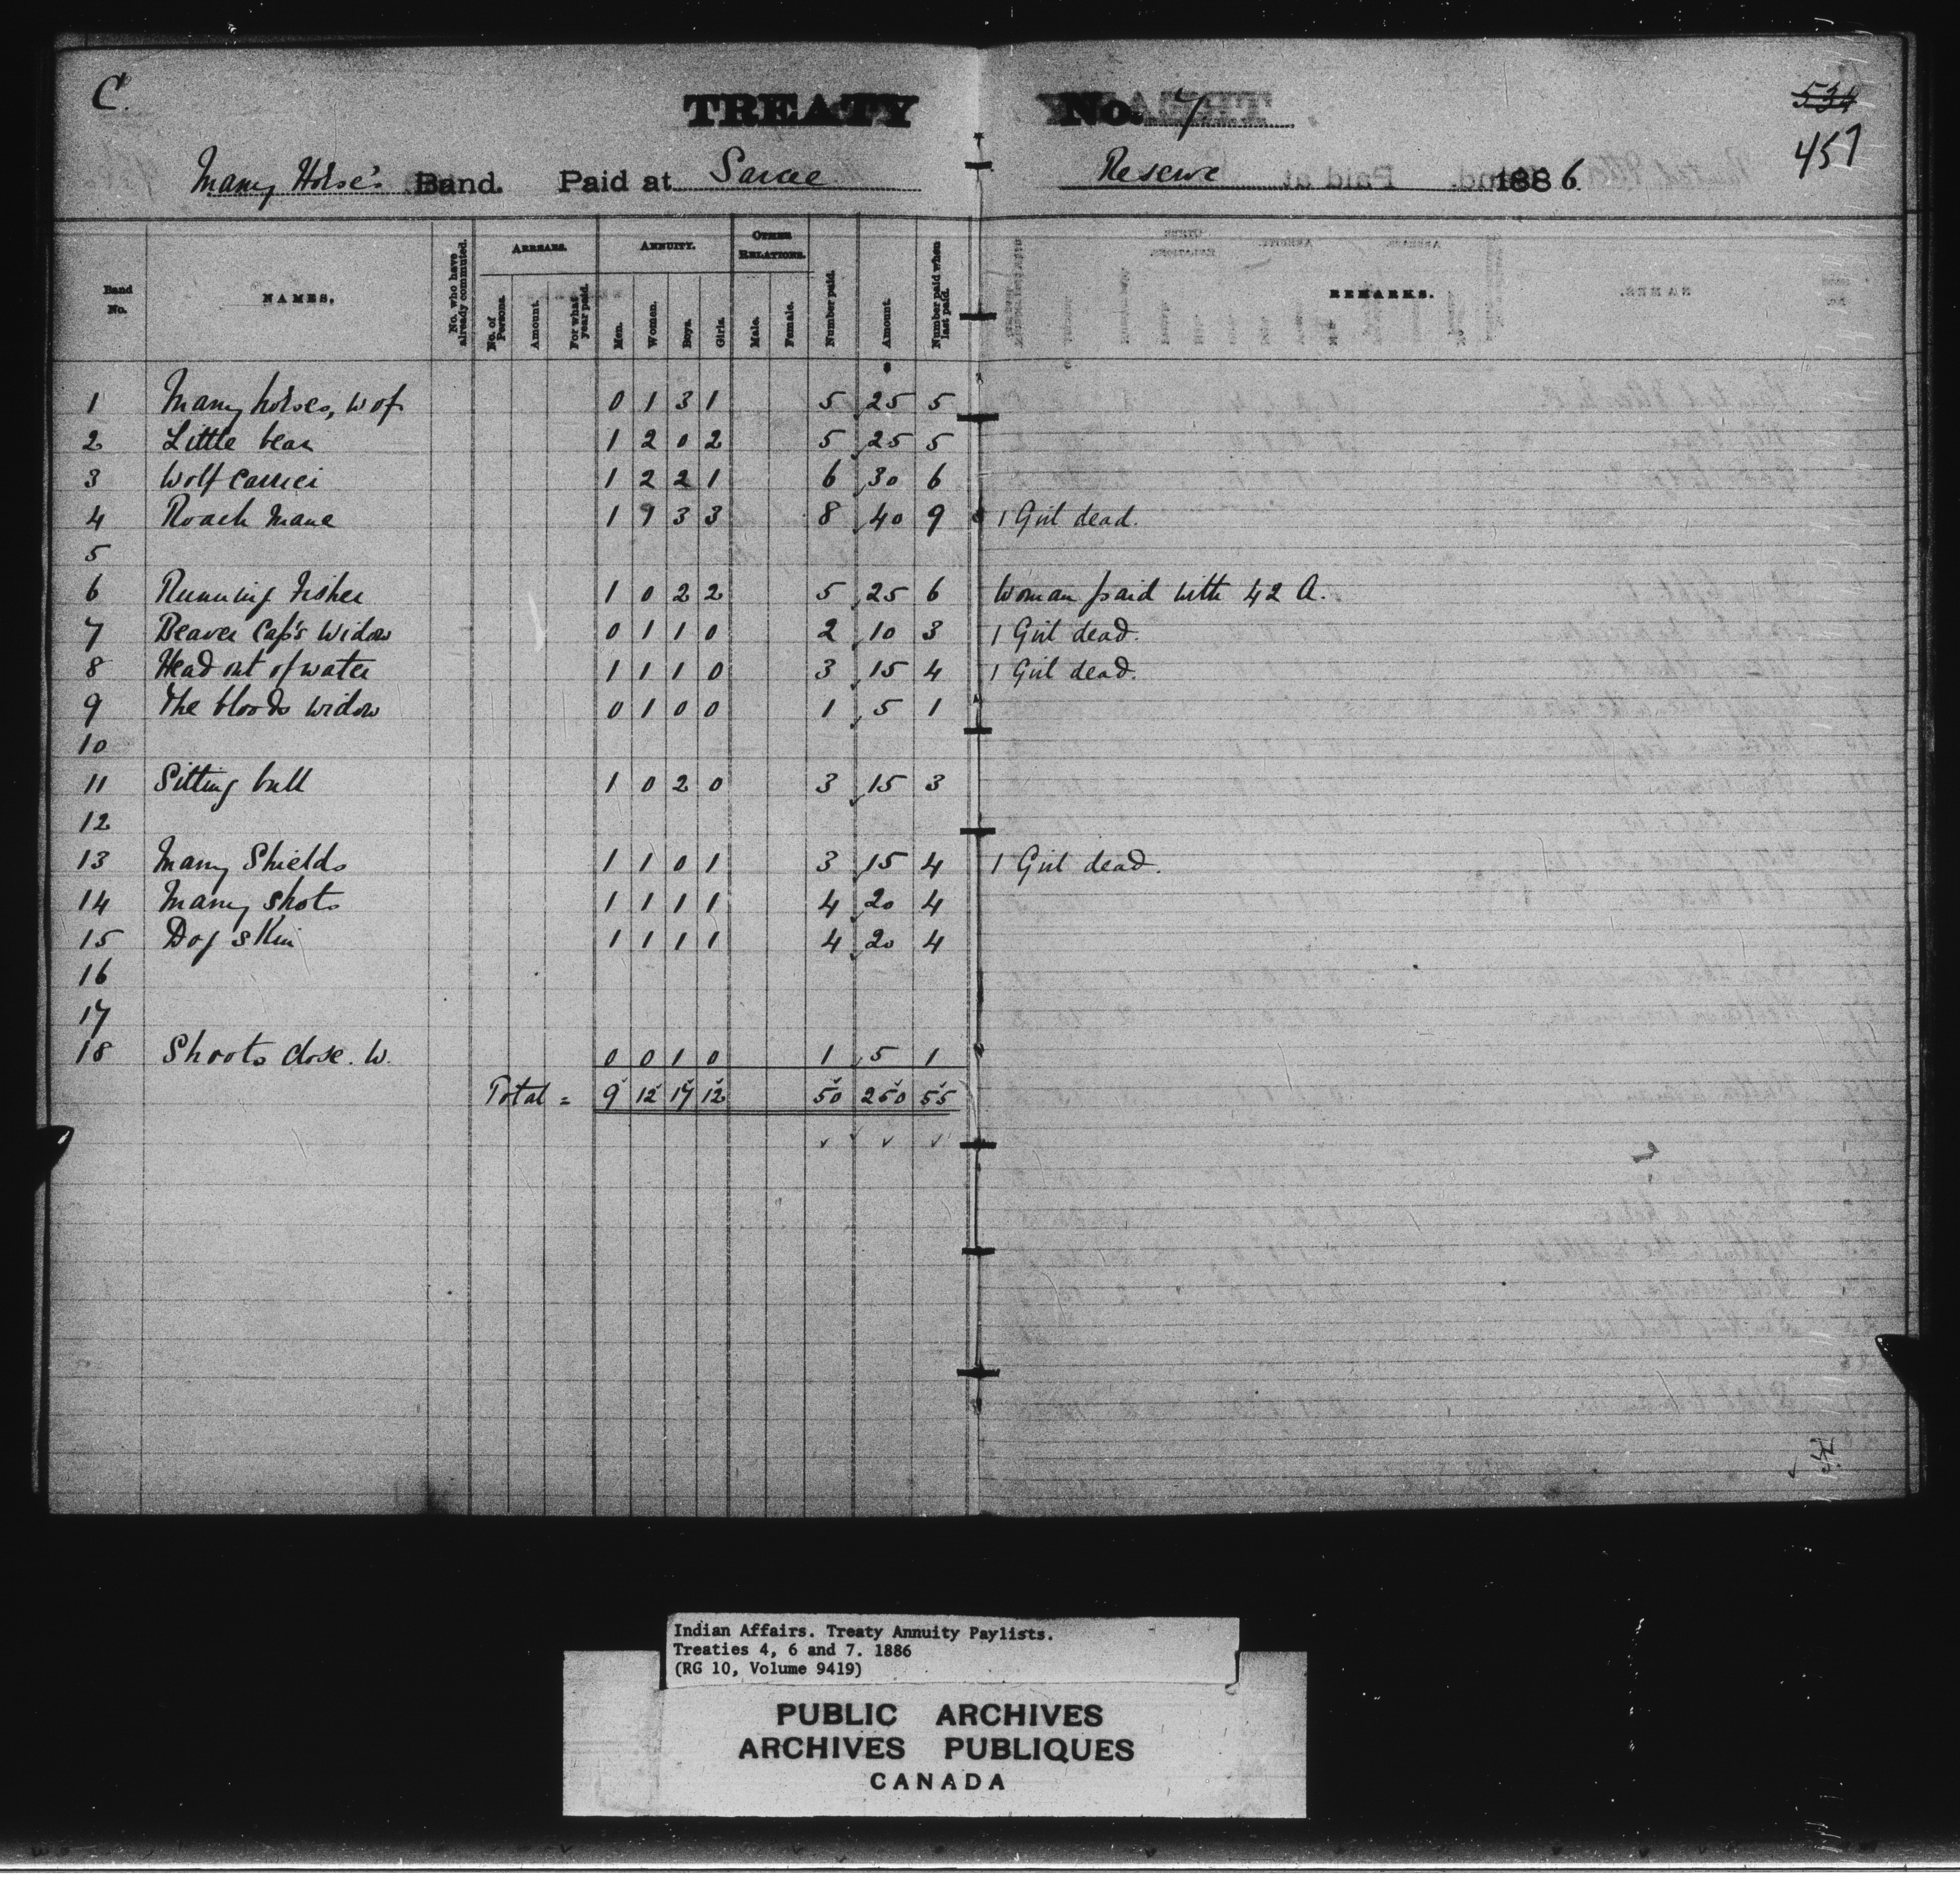 C.
TREATY No. 7
534
457
Many Horse's Band. Paid at Sarcee Reserve 1886
Band No. NAMES. No. who have already commuted. ARREARS. No. of Persons. Amount. For what year paid. ANNUITY. Men. Women. Boys. Girls. OTHER RELATIONS. Male. Female. Number paid. Amount. Number paid when last paid. REMARKS.
1 Many horses, W of 0 1 3 1 5 25 5
2 Little bear 1 2 0 2 5 25 5
3 Wolf Carrier 1 2 2 1 6 30 6
4 Roach Mane 1 1 3 3 8 40 9 1 Girl dead.
5
6 Running Fisher 1 0 2 2 5 25 6 Woman paid with 42 A.
7 Beaver Cap's Widow 0 1 1 0 2 10 3 1 Girl dead.
8 Head out of water 1 1 1 0 3 15 4 1 Girl dead.
9 The bloods widow 0 1 0 0 1 5 1
10
11 Sitting bull 1 0 2 0 3 15 3
12
13 Many Shields 1 1 0 1 3 15 4 1 Girl dead.
14 Many Shots 1 1 1 1 4 20 4
15 Dog Skin 1 1 1 1 4 20 4
16
17
18 Shoots close. W. 0 0 1 0 1 5 1
Total = 9 12 17 12 50 250 55
Indian Affairs. Treaty Annuity Paylists.
Treaties 4, 6 and 7. 1886
(RG 10, Volume 9419)
PUBLIC ARCHIVES
ARCHIVES PUBLIQUES
CANADA